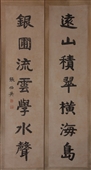 遠山積翠橫海島
銀圃流雲學水聲